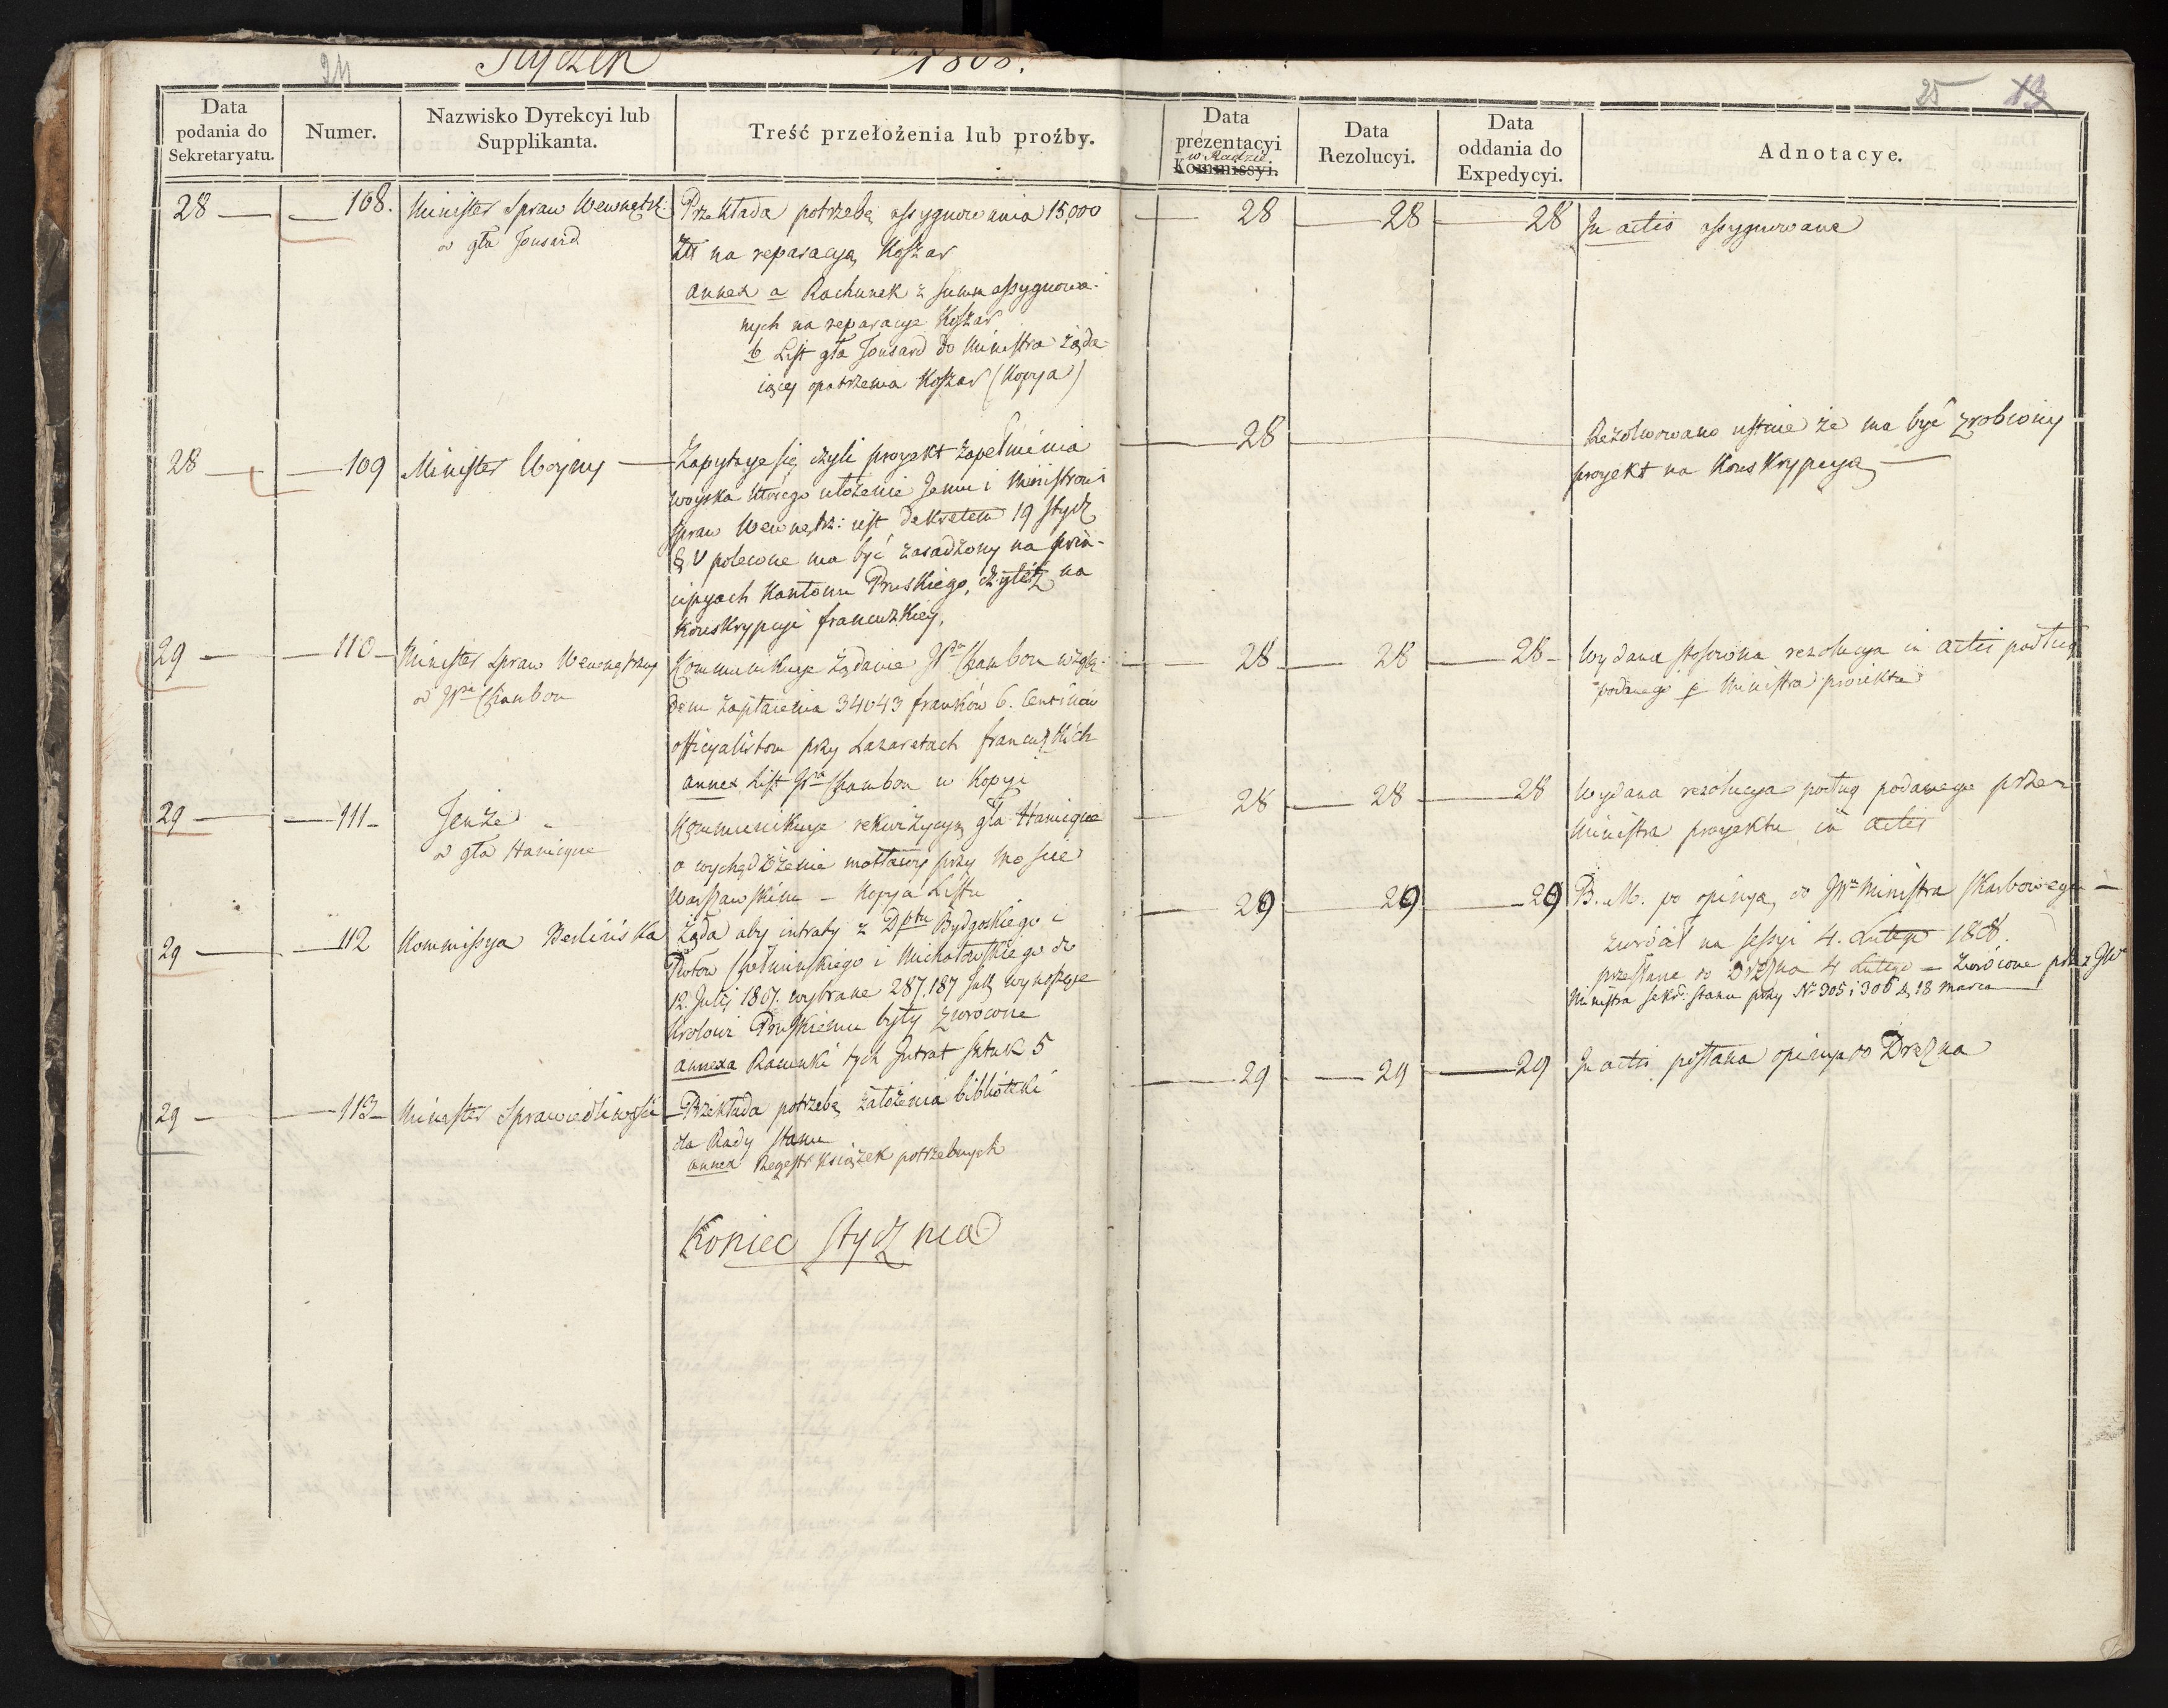 24
Styczeń 1808.
25 13
Data podania do Sekretaryatu.
Numer.
Nazwisko Dyrekcyi lub Supplikanta.
Treść przełożenia lub proźby.
Data prezentacyi w Radzie Kommissyi.
Data Rezolucyi.
Data oddania do Expedycyi.
Adnotacye.
28 — — 108. Minister Spraw Wewnętrz:
w gła Jousard
Przekłada potrzebę assygnowania 15,000
Złł na reparacyą Koszar
annex a Rachunek z summ assygnowa-
nych na reparacye Koszar
b List gła Jousard do Ministra żąda-
iącej opatrzenia Koszar (Kopya)
28 28 28 In actis assygnowane
28 — — 109 Minister Woyny —
Zapytuje się czyli proyekt zapełnienia
woyska którego ułożenie Jemu i Ministrowi
Spraw Wewnętrz: iest dekretem 19 stycz
§ V polecone ma być zasadzony na prin-
cipyach Kantonu Pruskiego, czyliż na
Konskrypcyi francuzkiey.
28 Rezolwowano ustnie że ma być zrobiony
proyekt na Konskrypcyą —
29 — — 110 — Minister Spraw Wewnętrzny
w Wgo Chambon
Kommunikuje żądanie Chambon wzglę-
dem zapłacenia 34043 franków 6. Centimów
officyalistom przy Lazaretach francuzkich
annex List Chambon w Kopyi
28 28 28 — Wydana stosowna rezolucya in actis podług
podanego p Ministra proiektu
29 — — 111 — Tenże
w gła Hanicque
Kommunikuje rekwizycyą gła Hanicque
o wychędożenie mostowy przy moście
Warszawskim — Kopya Listu
28 28 28 Wydana rezolucya podług podanego przez
Ministra proyektu in actis
29 — — 112 Kommissya Berlińska
Żąda aby intraty z Dptu Bydgoskiego i
Ptów Chełminskiego i Michałowskiego do
12. Julij 1807. wybrane 287,187 wynoszące
Krolowi Pruskiemu były zwrocone
annexa Rachunki tych Intrat sztuk 5
29 29 29 B. M. po opinią do JW Ministra Skarbowego —
zwrócił na sessyi 4. Lutego 1808.
przesłane do Drezna 4 Lutego — Zwrócone przez JW
Ministra Sekr: Stanu przy No 305 i 306 d. 18 Marca
29 — — 113 — Minister Sprawiedliwości —
Przekłada potrzebę założenia biblioteki
dla Rady Stanu
annex Regestr Książek potrzebnych
29 — 29 — 29 In actis posłana opinya do Drezna
Koniec Stycznia